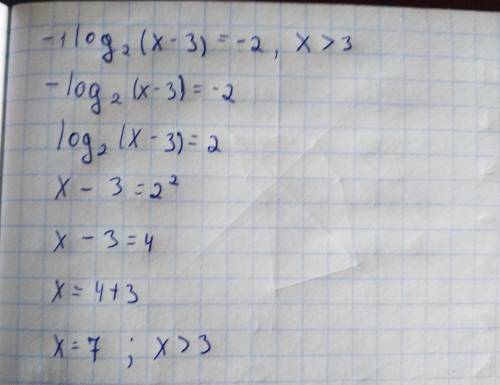 -1 log₂(x-3) = -2, x > 3
-log₂(x-3) = -2
log₂(x-3) = 2
x - 3 = 2²
x - 3 = 4
x = 4+3
x = 7 ; x > 3